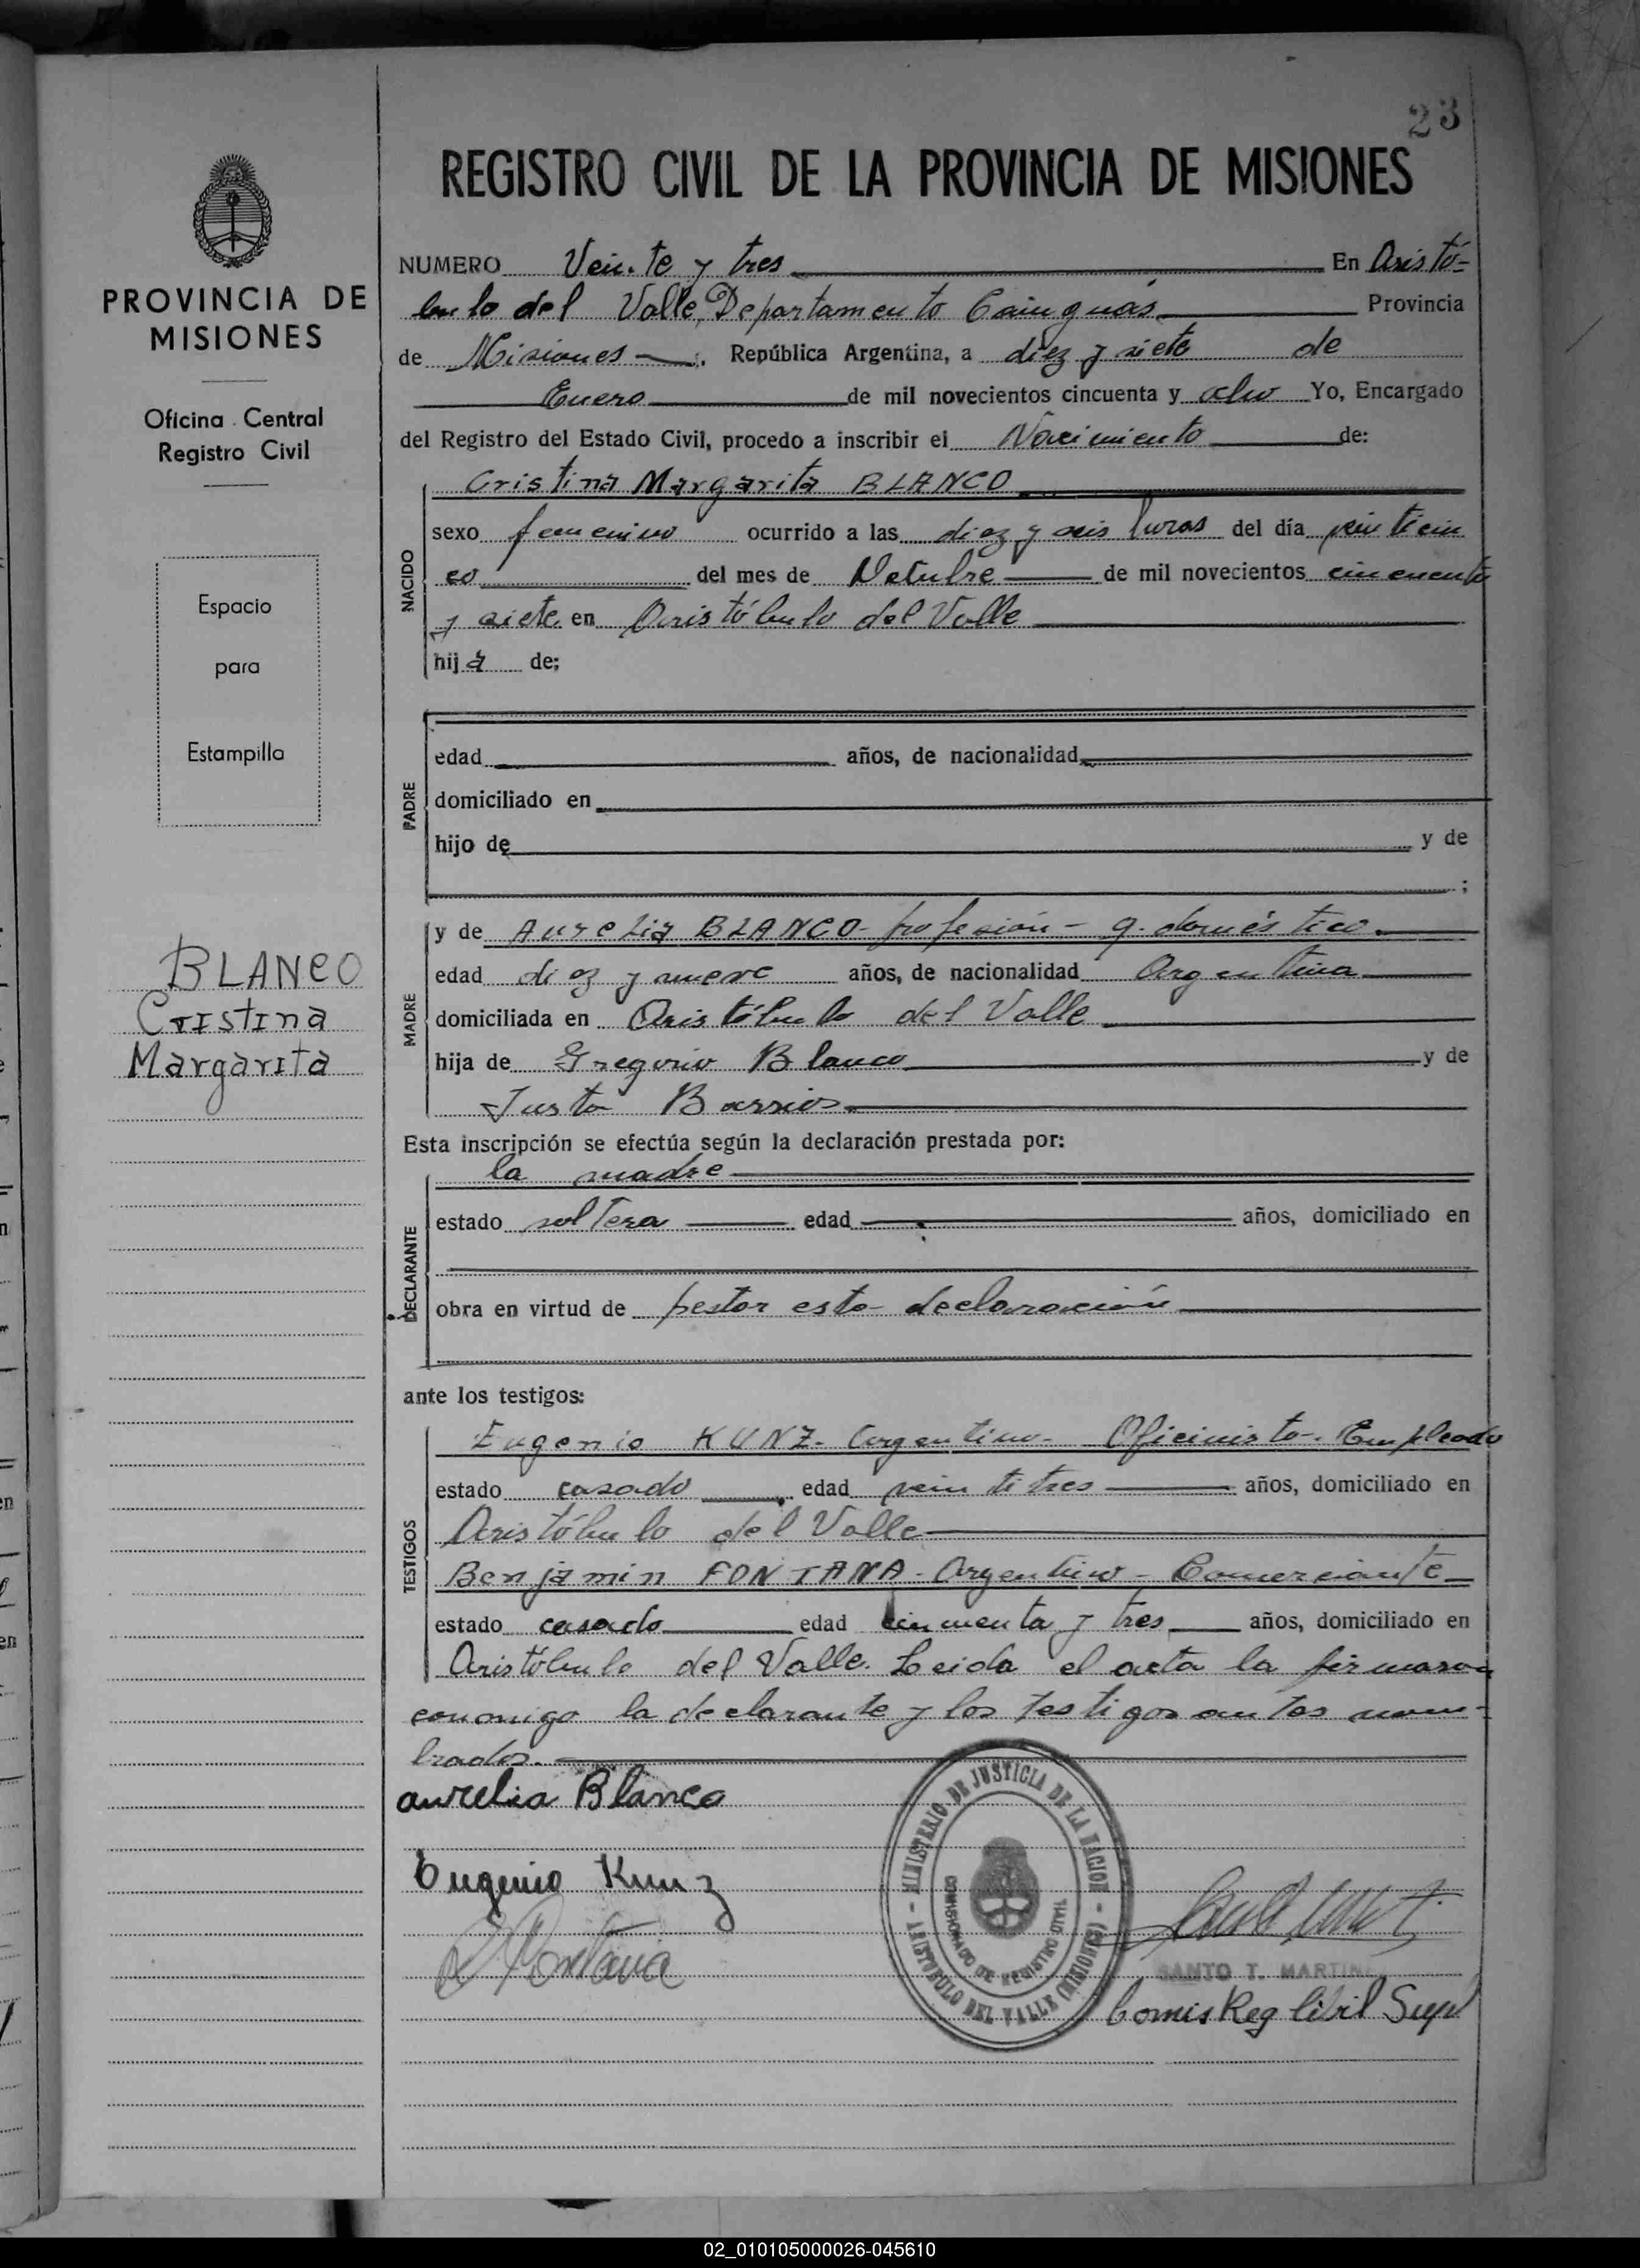 23
REGISTRO CIVIL DE LA PROVINCIA DE MISIONES
PROVINCIA DE
MISIONES
Oficina Central
Registro Civil
Espacio
para
Estampilla
BLANCO
Cristina
Margarita
NUMERO Vein te y tres En Aristó-
bulo del Valle, Departamento Cainguás Provincia
de Misiones República Argentina, a diez y siete de
Enero de mil novecientos cincuenta y ocho Yo, Encargado
del Registro del Estado Civil, procedo a inscribir el Nacimiento de:
Cristina Margarita BLANCO
NACIDO
sexo femenino ocurrido a las diez y seis horas del día veinticin
co del mes de Octubre de mil novecientos cincuenta
y siete en Aristóbulo del Valle
hija de;
PADRE
edad años, de nacionalidad
domiciliado en
hijo de y de
;
MADRE
y de Aurelia BLANCO - profesión - q. doméstico.
edad diez y nueve años, de nacionalidad Argentina
domiciliada en Aristóbulo del Valle
hija de Gregorio Blanco y de
Justa Barrios
Esta inscripción se efectúa según la declaración prestada por:
la madre
DECLARANTE
estado soltera edad años, domiciliado en
obra en virtud de pestar esta declaración
ante los testigos:
TESTIGOS
Eugenio KUNZ - Argentino - Oficinista - Empleado
estado casado edad vein ti tres años, domiciliado en
Aristóbulo del Valle
Benjamin FONTANA - Argentino - Comerciante
estado casado edad cincuenta y tres años, domiciliado en
Aristóbulo del Valle. Leida el acta la firmaron
conmigo la declarante y los testigos antes nom-
brados.
aurelia Blanco
Eugenio Kunz
B Fontana
MINISTERIO DE JUSTICIA DE LA NACION
COMISIONADO DE REGISTRO CIVIL
ARISTOBULO DEL VALLE (MISIONES)
SANTO T. MARTIN
Comis Reg Cibil Supl
02_010105000026-045610